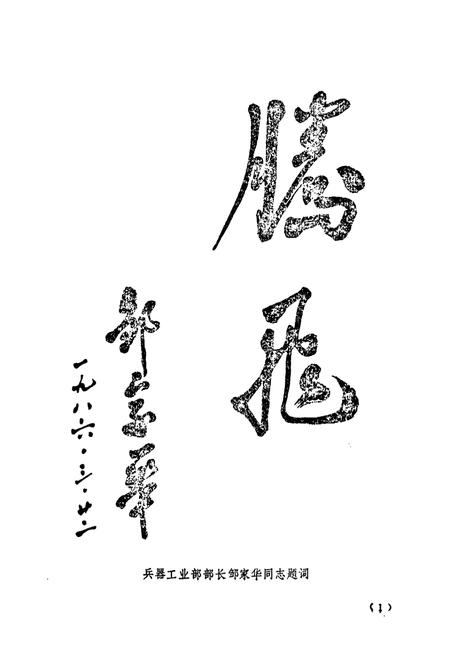 腾飞
邹家华
一九八六·三·廿二
兵器工业部部长邹家华同志题词
（1）